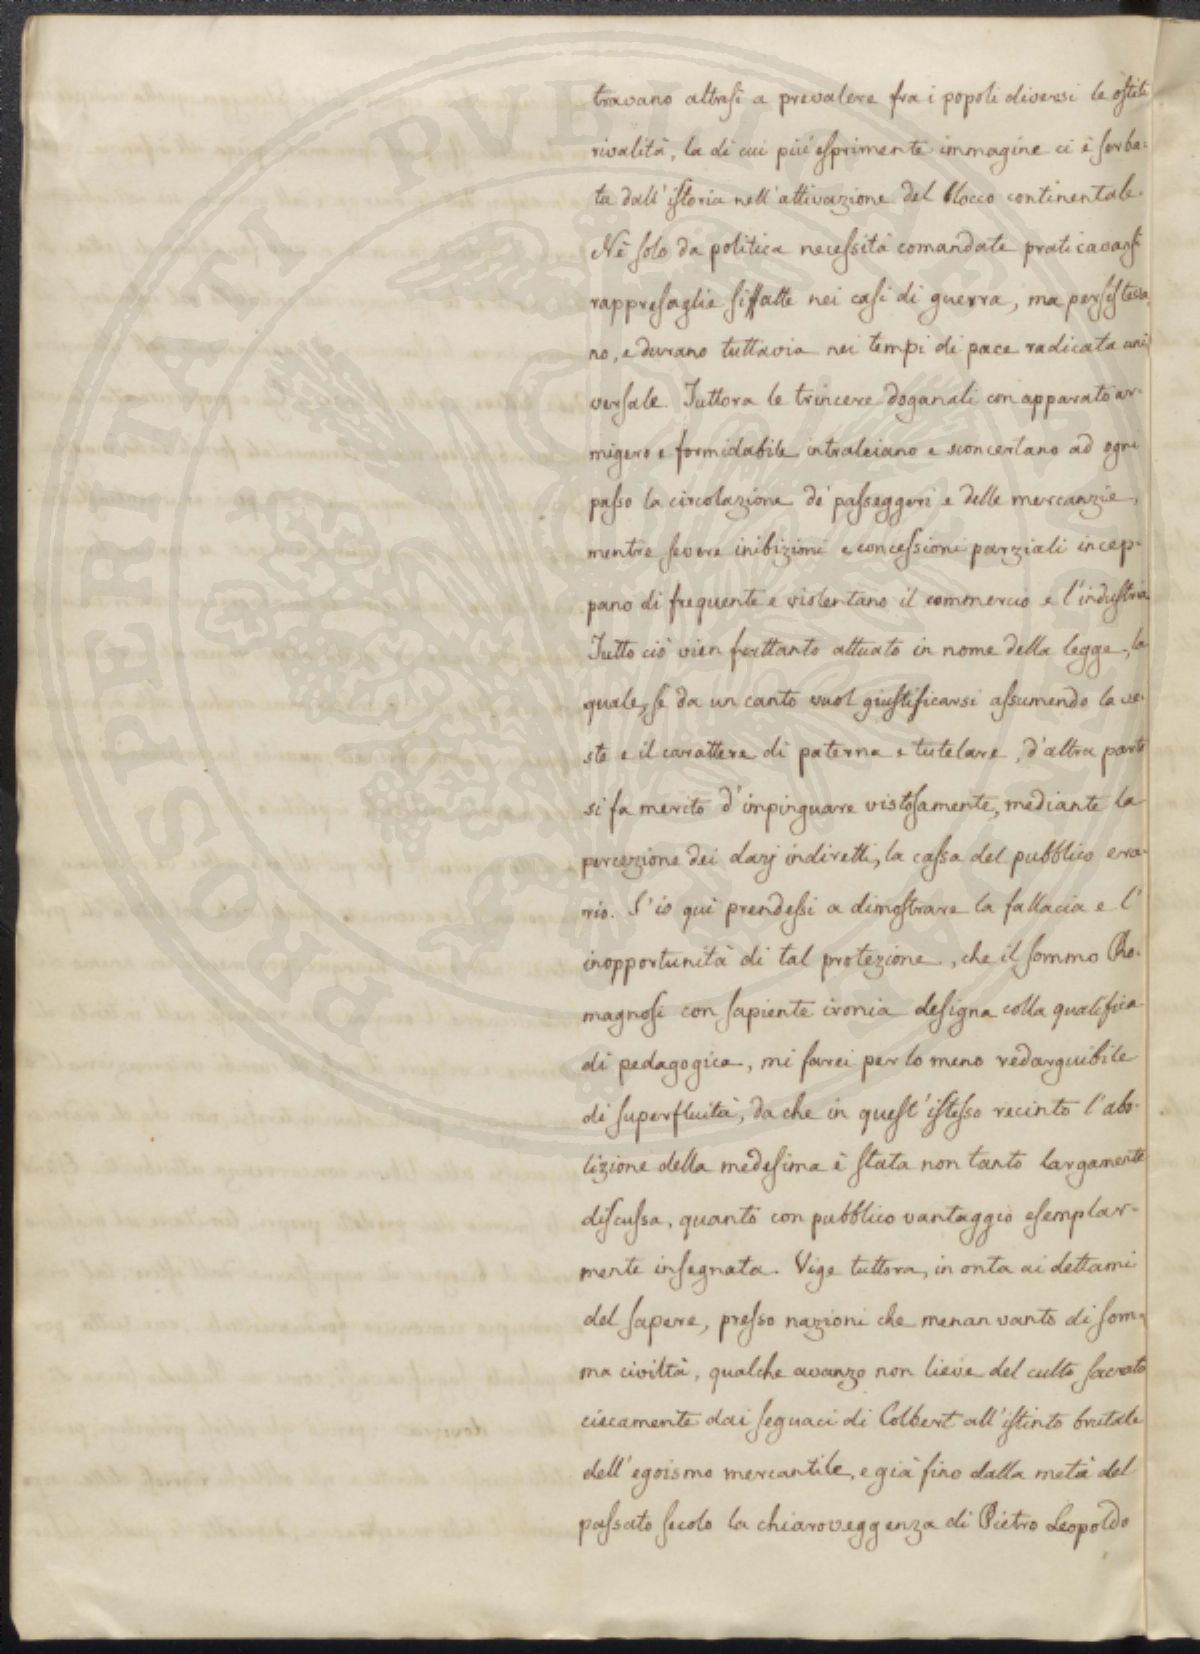 travano altresì a prevalere fra i popoli diversi le ostili
rivalità, la di cui più esprimente immagine ci è serba-
ta dall'istoria nell'attivazione del blocco continentale.
Nè solo da politica necessità comandate praticavansi
rappresaglie siffatte nei casi di guerra, ma persisteva-
no, e durano tuttavia nei tempi di pace radicata uni
versale. Tuttora le trincere doganali con apparato ar-
migero e formidabile intralciano e sconcertano ad ogni
passo la circolazione de' passeggeri e delle mercanzie,
mentre severe inibizioni e concessioni parziali incep-
pano di frequente e violentano il commercio e l'industria
Tutto ciò vien frattanto attuato in nome della legge, la
quale, se da un canto vuol giustificarsi assumendo la ve-
ste e il carattere di paterna e tutelare, d'altra parte
si fa merito d'impinguare vistosamente, mediante la
percezione dei dazj indiretti, la cassa del pubblico era-
rio. S'io quì prendessi a dimostrare la fallacia e l'
inopportunità di tal protezione, che il sommo Ro-
magnosi con sapiente ironia designa colla qualifica
di pedagogica, mi farei per lo meno redarguibile
di superfluità, da che in quest'istesso recinto l'abo-
lizione della medesima è stata non tanto largamente
discussa, quanto con pubblico vantaggio esemplar-
mente insegnata. Vige tuttora, in onta ai dettami
del sapere, presso nazioni che menan vanto di som-
ma civiltà, qualche avanzo non lieve del culto sacrato
ciecamente dai seguaci di Colbert all'istinto brutale
dell'egoismo mercantile, e già fino dalla metà del
passato secolo la chiaroveggenza di Pietro Leopoldo
PROSPERITATI PVBLICAE